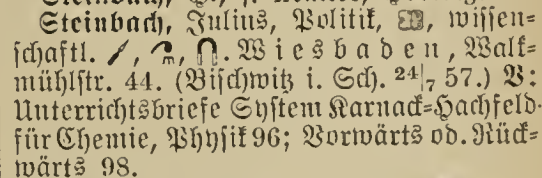 Steinbach, Julius, Politik, wissen-
schaftl. Wiesbaden, Walk-
mühlstr. 44. (Bischwitz i. Sch. 24/7 57.) V:
Unterrichtsbriefe System Karnack-Hachfeld
für Chemie, Physik 96; Vorwärts od. Rück-
wärts 98.